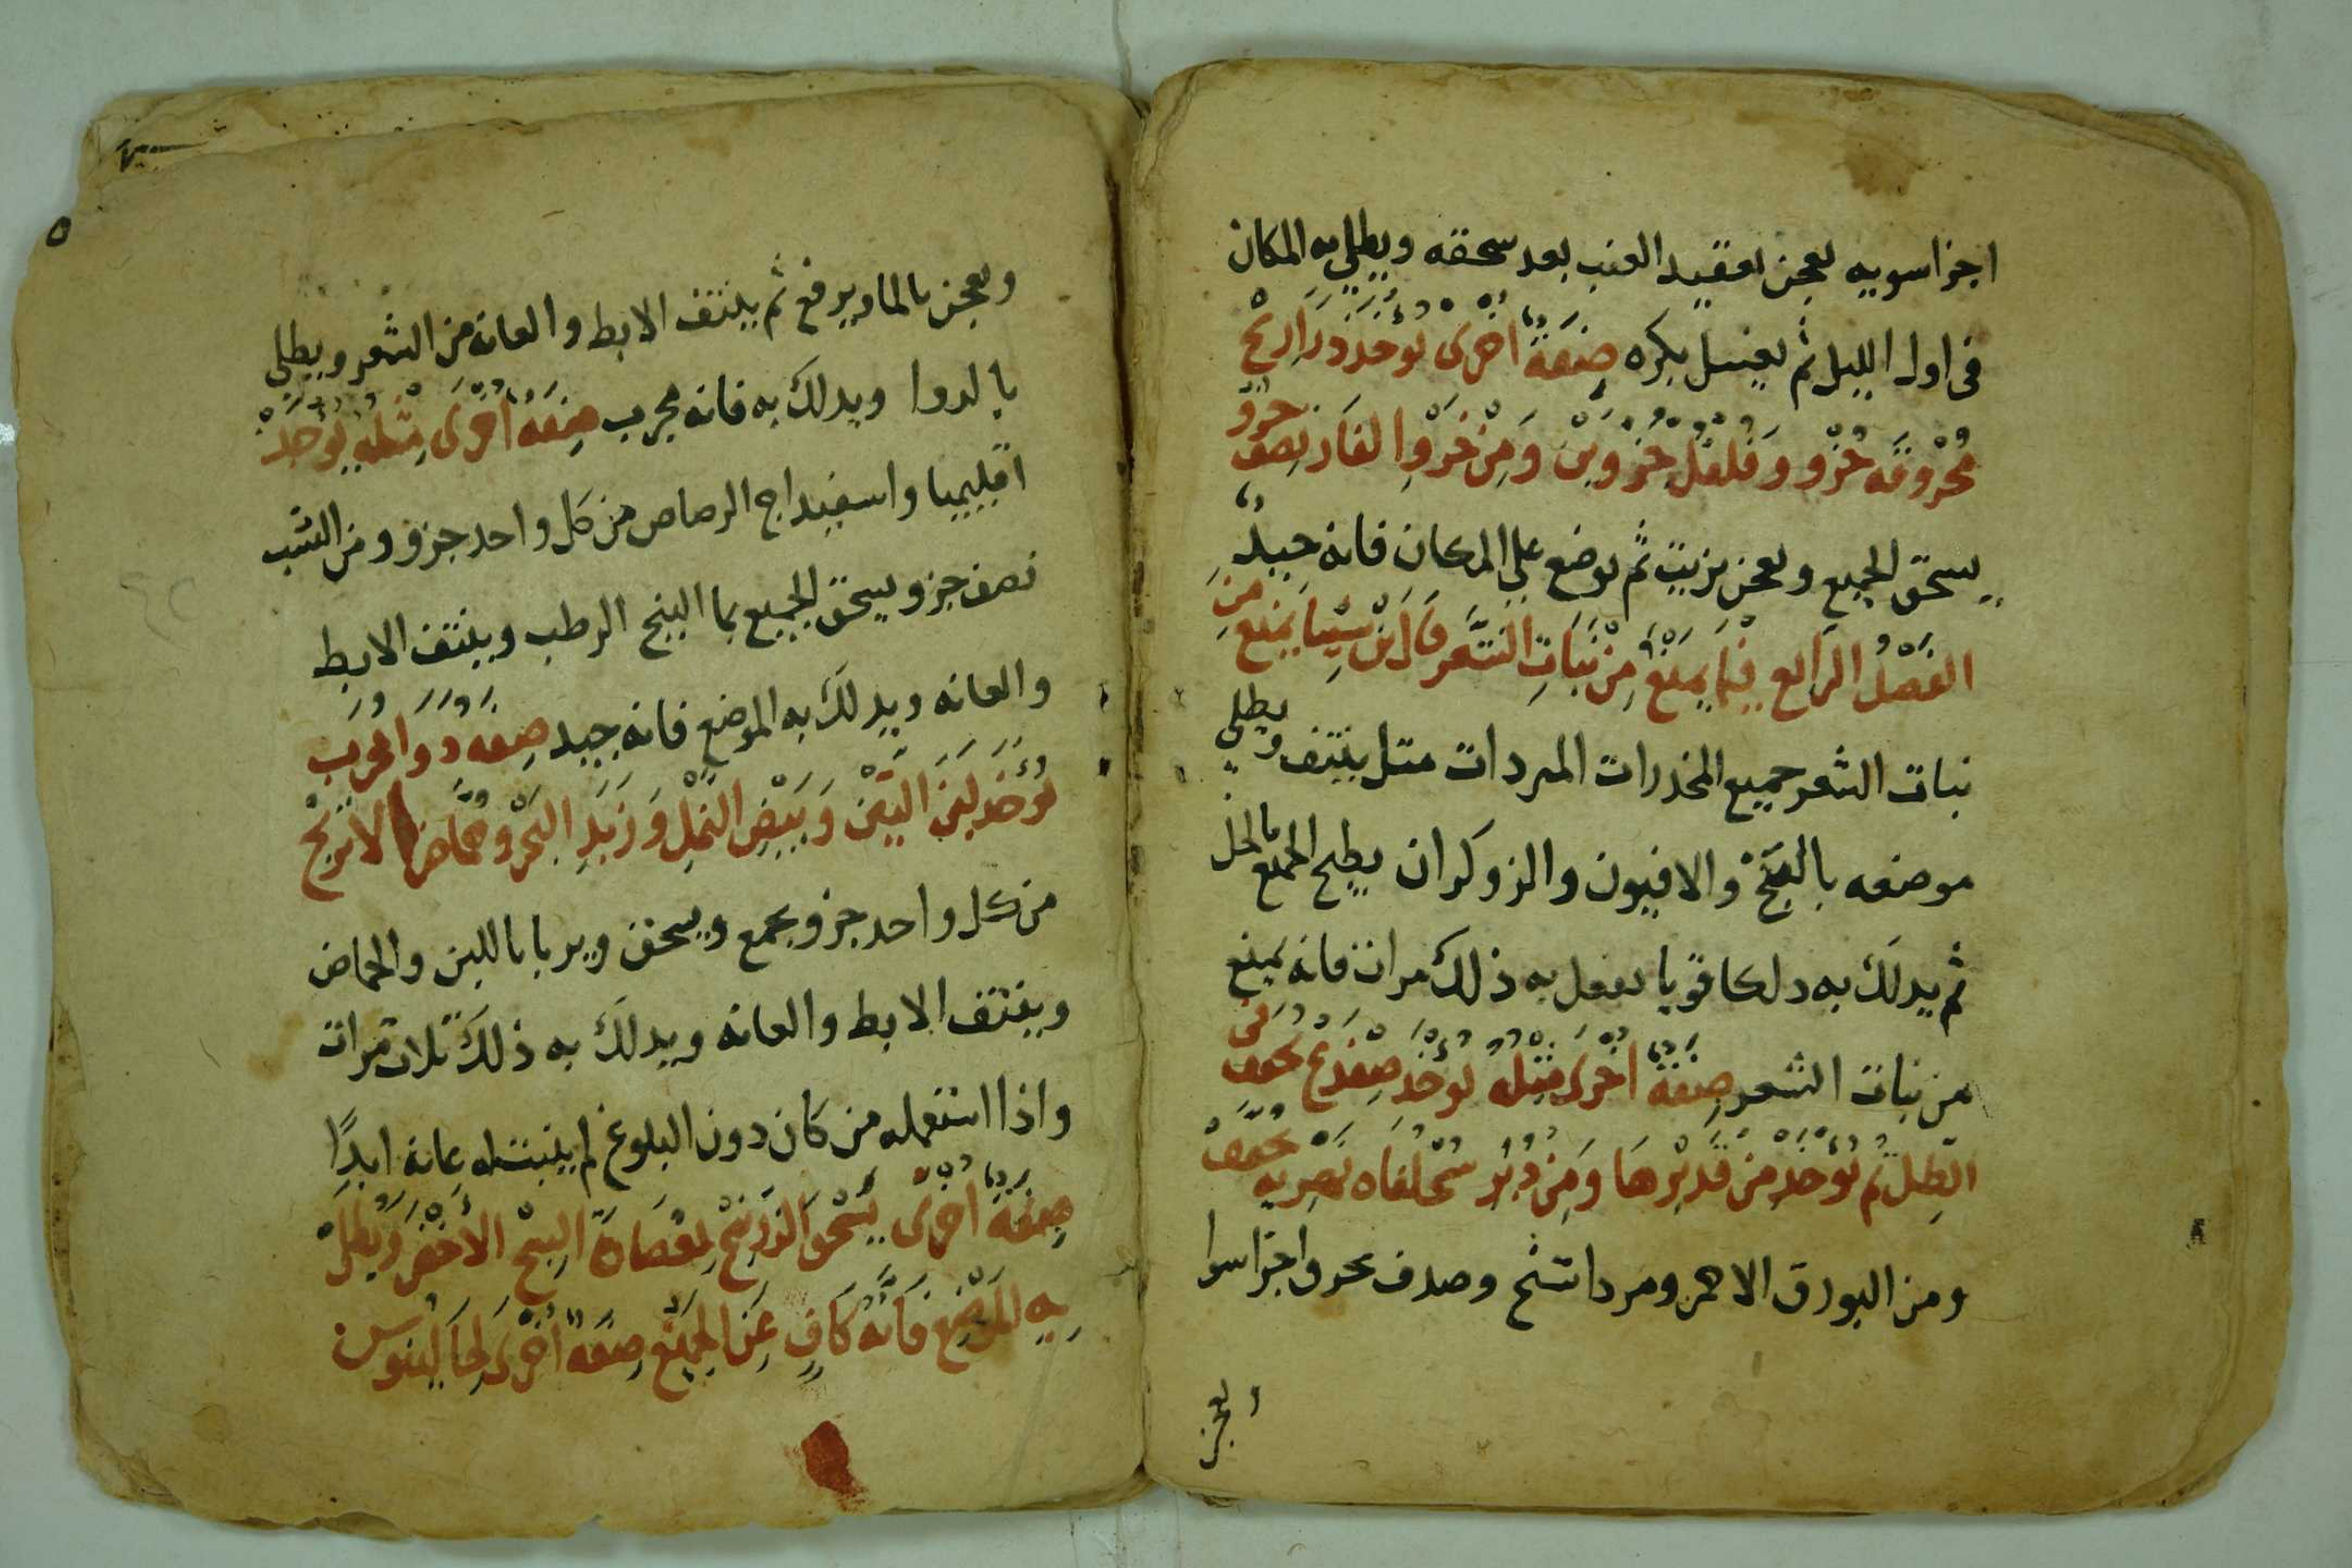 اجزا سويه يعجن بعقيد العنب بعد سحقه ويطلي به المكان
فى اول الليل ثم يغسل بكره صِفَةٌ اُخرى يُوخَذ ذَرَارِيح
مُحْرُوقَه جُزْو وَفُلفل جُزْوين وَمِنْ خَرْوِ الفَار نِصف جزو
يسحق الجميع ويعجن بزيت ثم يوضع على المكان فانه جيد
الفَصْلُ الرَابع فيما يمنَع مِنْ نبَاتِ الشعر قال ابن سِينا يمنع مِن
نبات الشعر جميع المخدرات المبردات متل ينتف ويطلي
موضعه بالبَنج والافيون والزوكران يطبخ الجميع بالخل
ثم يدلك به دلكا قويا يفعل به ذلك مرات فانه يمنع
من نبات الشعر صِفَةٌ اخرى مِثلهُ يُوخذ ضِفدع يجفف فى
الظِل ثم يُوْخَذ مِنْ قَدِيْرها وَمِن دِبر سُحْلفاه بَحرِيه مجفف
ومن البورق الاحمر ومرداسنج وصدف محرق اجزا سوا
ويعجن
ويعجن بالما ويرفع ثم ينتف الابط والعانه من الشعر ويطلي
بالدوا ويدلك به فانه مجرب صِفَةٌ اُخْرَى مِثْلهُ يُوْخَذ
اقليميا واسفيداج الرصاص من كل واحد جزو ومن الشب
نصف جزو ويسحق الجميع بما البنج الرطب وينتف الابط
والعانه ويدلك به الموضع فانه جيد صِفَه دَوَا مُجَرَب
يُوخَذ لبَن التين وَبَيْضِ النمْلِ وَزبَدِ البَحْر وحُمَّاض الاترُجْ
من كل واحد جزو يجمع ويسحق ويربا باللبن والحماض
وينتف الابط والعانه ويدلك به ذلك تلات مرات
واذا استعمله من كان دون البلوغ لم ينبت له عانه ابدًا
صِفَةٌ اُخْرَى يُسْحَق الزرنيخ بِعُصَارَة البنج الاَخْضَر وَيُطلَى
بِهِ المَوْضِع فَاِنَّهُ كَافٍ عَن الجَمِيْع صِفَةٌ اُخْرَى لِجَالينوس